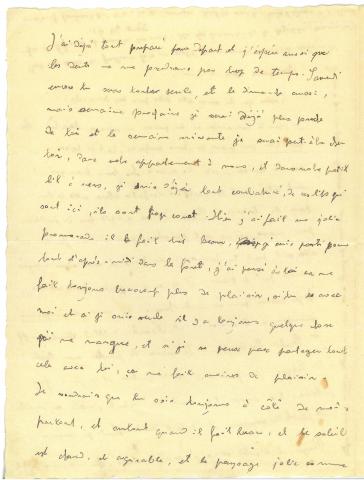 J'ai déjà tout préparé pour départ et j'espère aussi que
les dents ne me prendrons pas trop de temps. Samedi
encore tu sera seule et le dimanche aussi,
mais semaine prochaine je serai déjà plus proche
de toi et la semaine suivante je serai peut-être chez
toi, dans notre appartement à nous, et dans notre petit
lit à nous, je suis déjà tout, de ces lits qui
sont ici, ils sont trop court. Hier j'ai fait une jolie
promenade il a fait très beau, je suis parti pour
tout l'après-midi dans la fôret, j'ai pensé à toi ça me
fait toujours beaucoup plus de plaisir, si tu es avec
moi et si je suis seule il y a toujours quelque chose
qui me manque, et si je ne peux pas partager tout
cela avec toi, ça me fait moins de plaisir.
Je voudrais que tu sois toujours à côté de moi
partout, et surtout quand il fait beau, et le soleil
est chaud, et agréable, et le paysage jolie comme